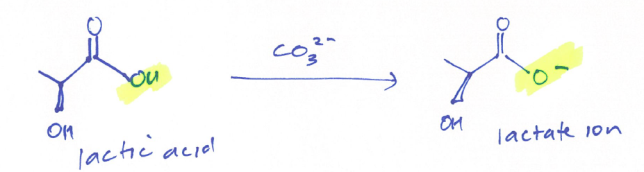 O
OH
OH
lactic acid
CO₃²⁻
O
O⁻
OH
lactate ion